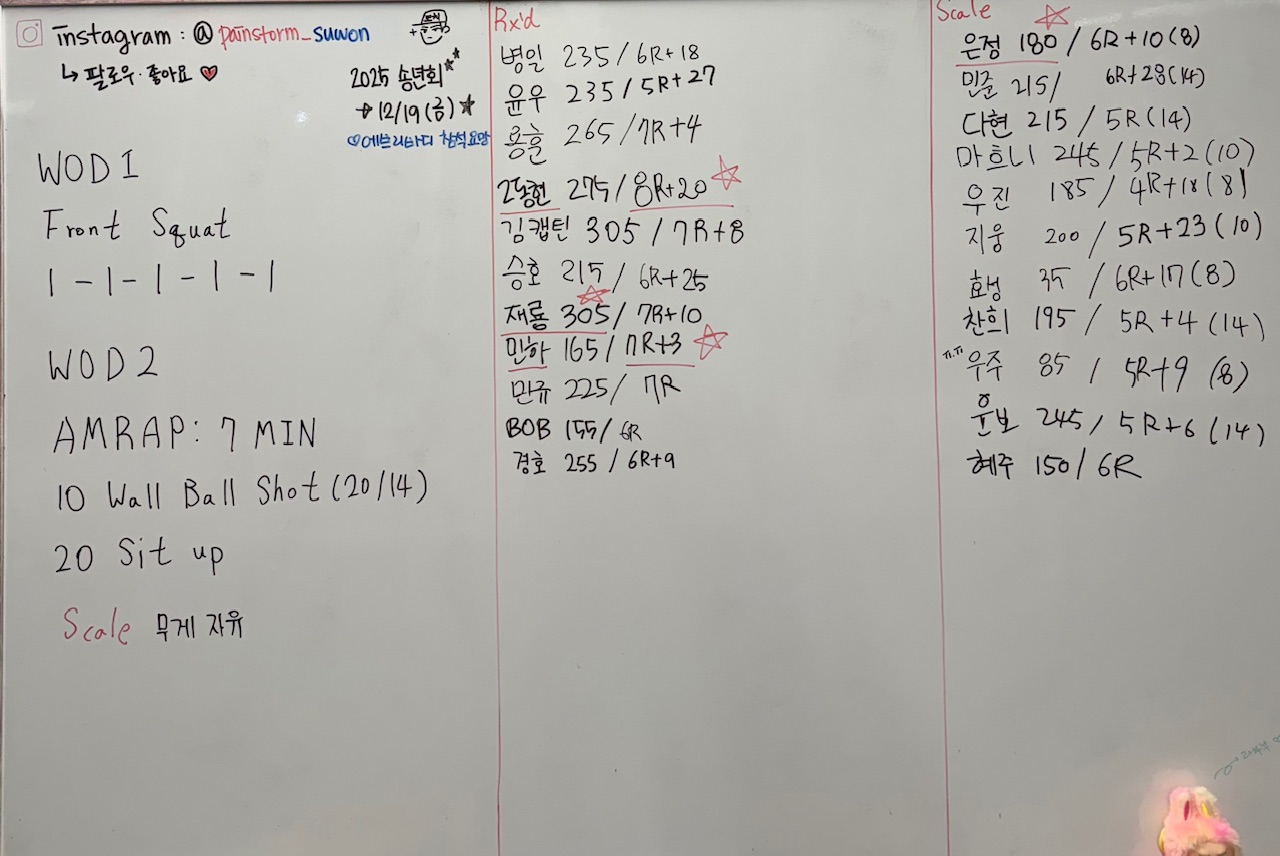 instagram : @painstorm_suwon
↳ 팔로우·좋아요 ♥
2025 송년회**
→ 12/19(금)★
♡에브리바디 참석요망
WOD 1
Front Squat
1 - 1 - 1 - 1 - 1
WOD 2
AMRAP: 7 MIN
10 Wall Ball Shot (20/14)
20 Sit up
Scale 무게 자유
Rx'd
병일 235 / 6R+18
윤우 235 / 5R+27
용훈 265 / 7R+4
2동현 275 / 8R+20 ☆
김캡틴 305 / 7R+8
승호 215 / 6R+25
재룡 305 / 7R+10
민하 165 / 7R+3 ☆
민규 225 / 7R
BOB 155 / 6R
경호 255 / 6R+9
Scale
은정 180 / 6R+10 (8)
민준 215 / 6R+28 (14)
다현 215 / 5R (14)
마흐니 245 / 5R+2 (10)
우진 185 / 4R+18 (8)
지웅 200 / 5R+23 (10)
효성 35 / 6R+17 (8)
찬희 195 / 5R+4 (14)
ㅠ.ㅠ 우주 85 / 5R+9 (8)
윤보 245 / 5R+6 (14)
혜주 150 / 6R